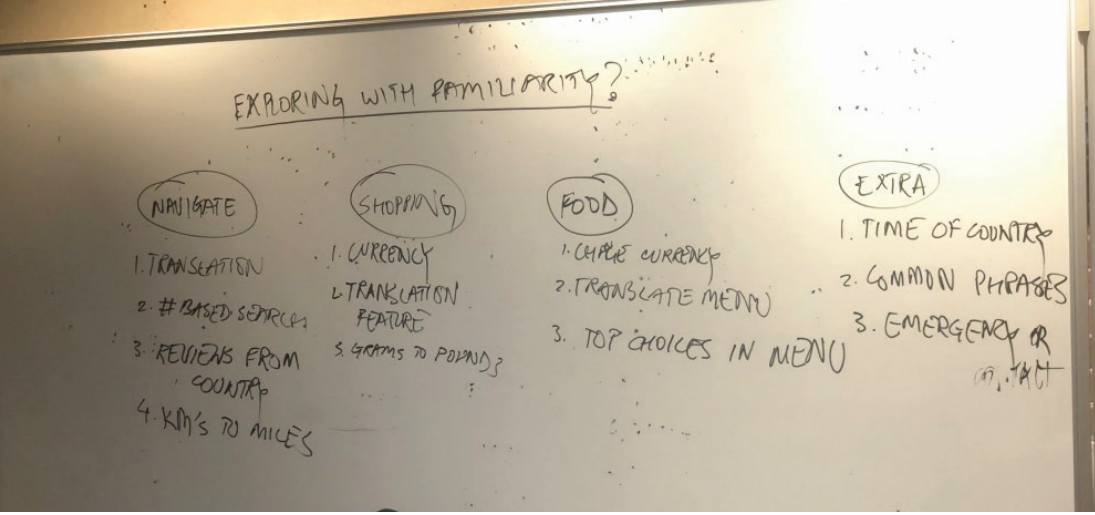 EXPLORING WITH FAMILIARITY?
NAVIGATE
1. TRANSLATION
2. # BASED SEARCH
3. REVIEWS FROM
COUNTRY
4. KM'S TO MILES
SHOPPING
1. CURRENCY
2. TRANSLATION
FEATURE
3. GRAMS TO POUNDS
FOOD
1. CURRENCY
2. TRANSLATE MENU
3. TOP CHOICES IN MENU
EXTRA
1. TIME OF COUNTRY
2. COMMON PHRASES
3. EMERGENCY OR